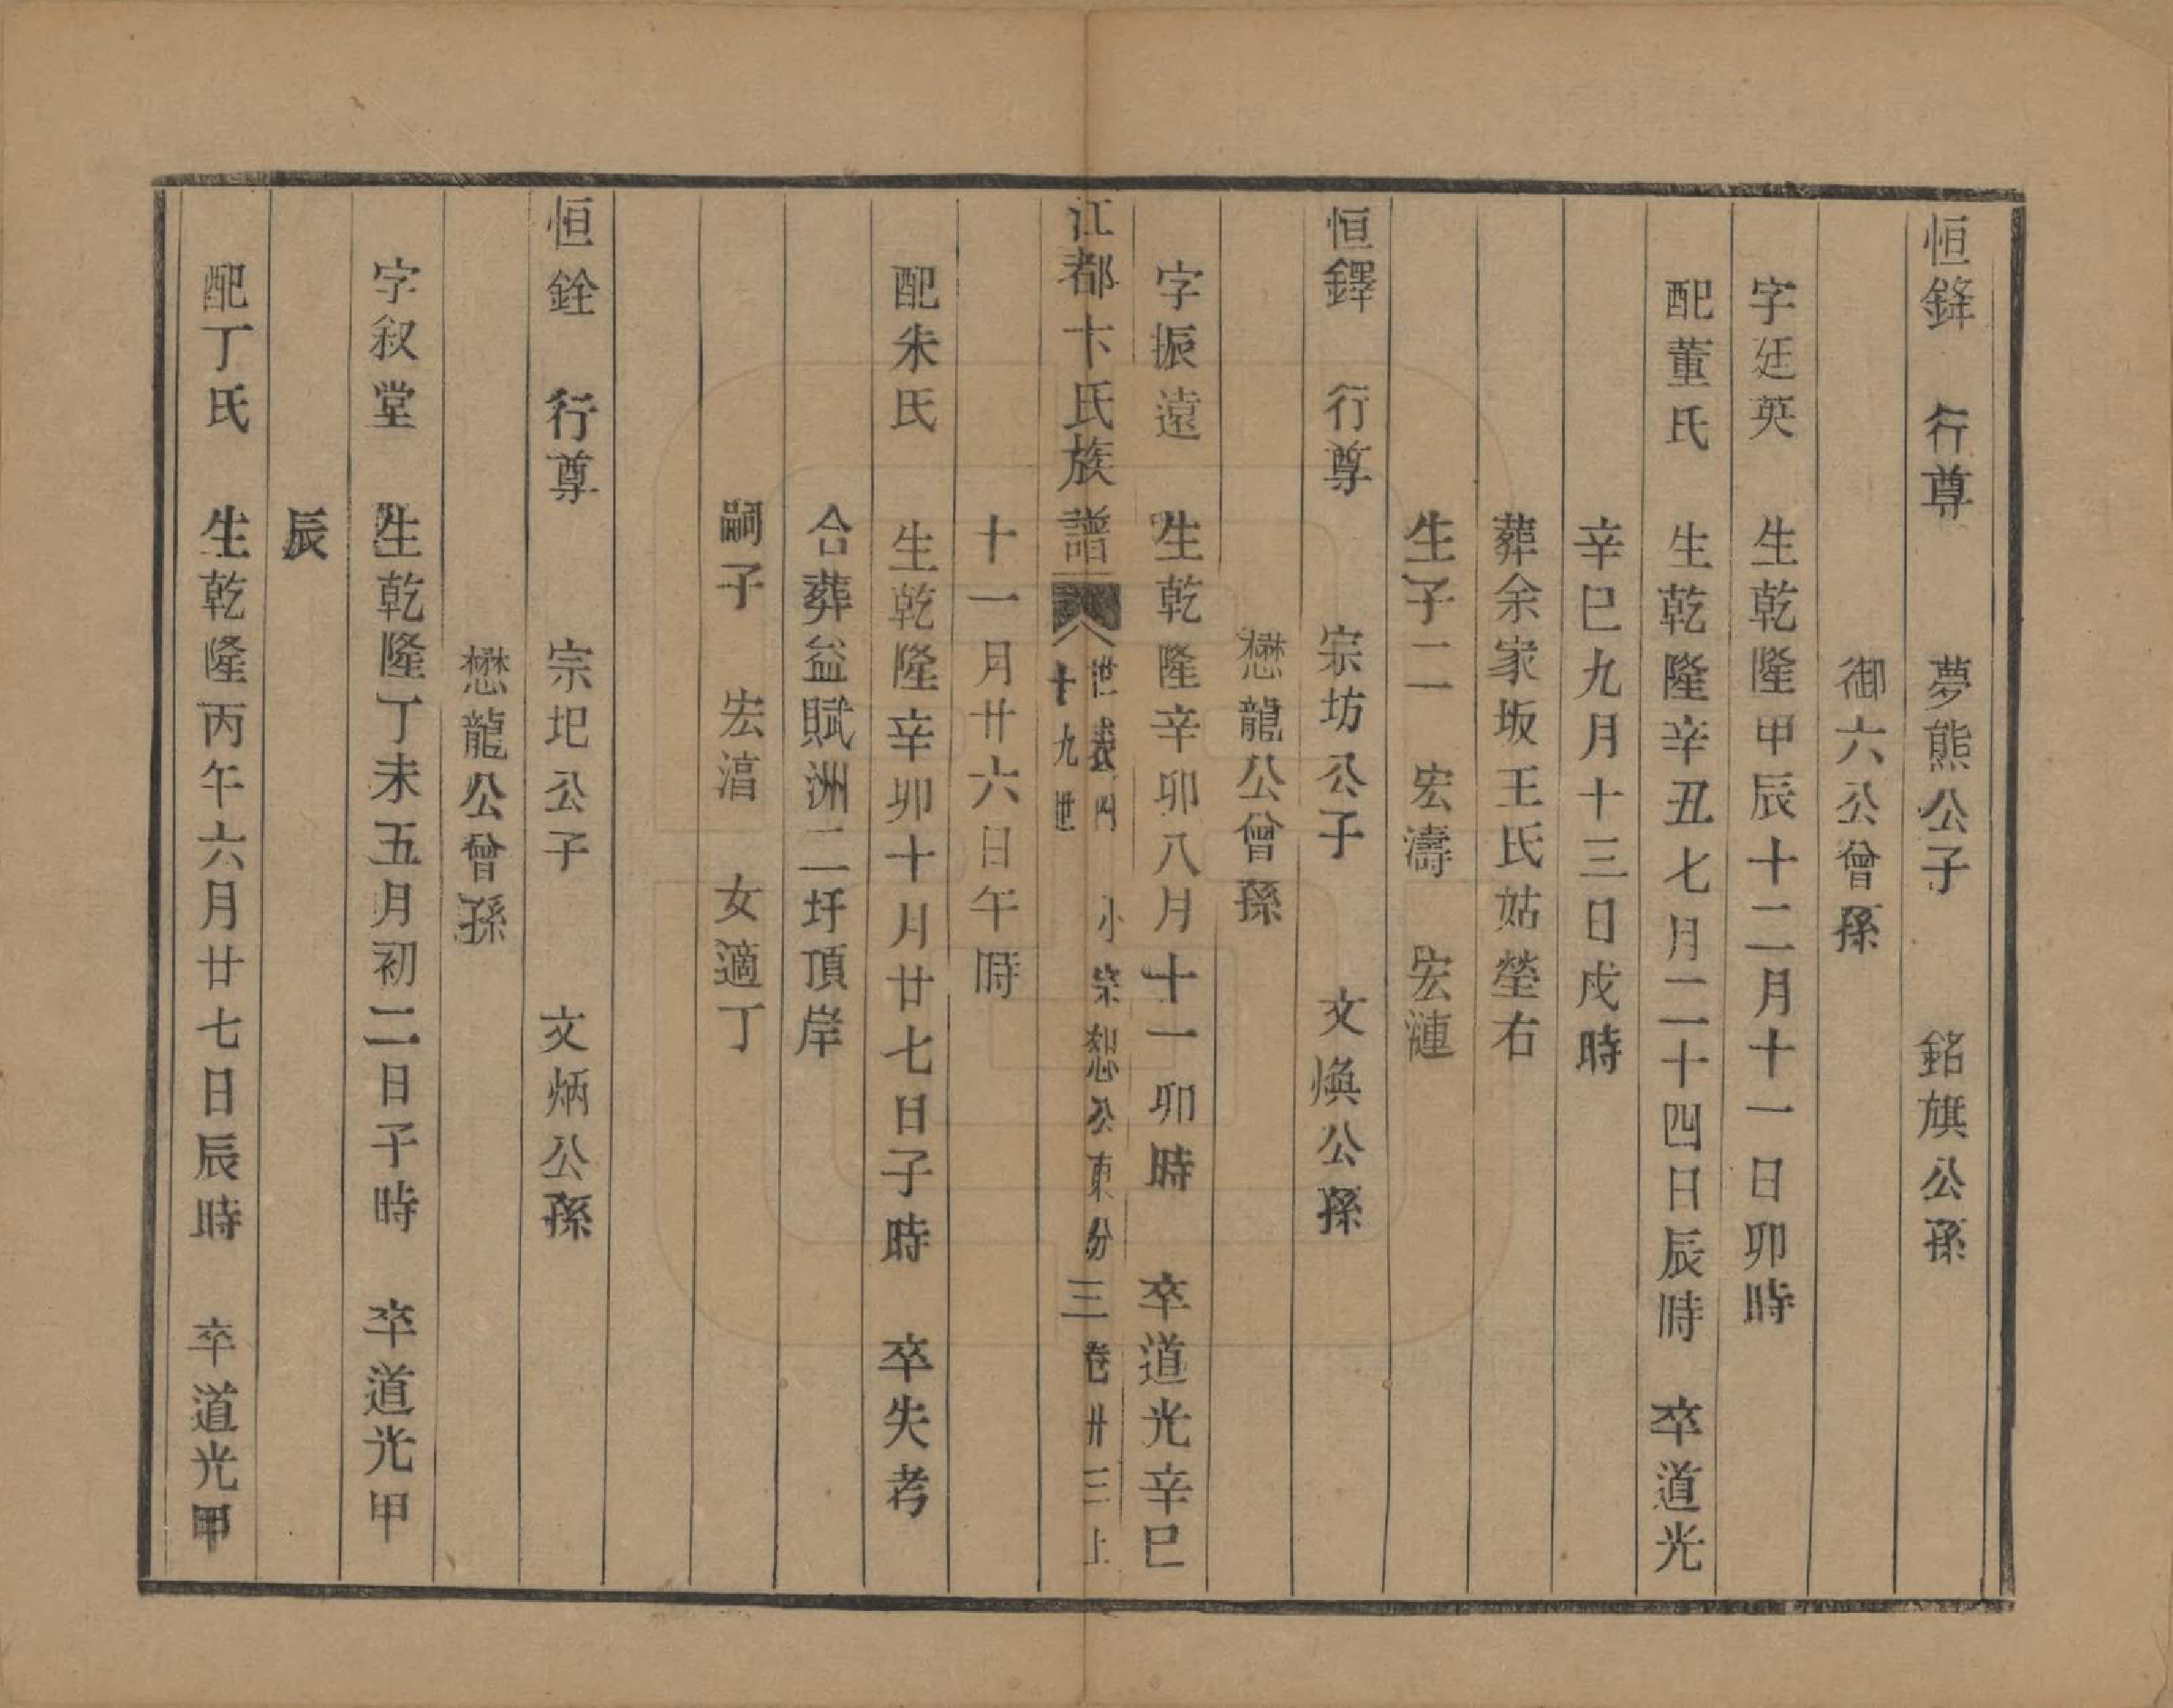 恒鋒 行尊 夢熊公子 銘旗公孫
御六公曾孫
字廷英 生乾隆甲辰十二月十一日卯時
配董氏 生乾隆辛丑七月二十四日辰時 卒道光
辛巳九月十三日戌時
葬余家坂王氏姑塋右
生子二 宏濤 宏漣
恒鐸 行尊 宗坊公子 文煥公孫
懋龍公曾孫
字振遠 生乾隆辛卯八月十一卯時 卒道光辛巳
江都卞氏族譜 世表四 十九世 小宗恕公東分 三 卷卅三上
十一月廿六日午時
配朱氏 生乾隆辛卯十月廿七日子時 卒失考
合葬益賦洲二圩頂岸
嗣子 宏湻 女適丁
恒銓 行尊 宗圯公子 文炳公孫
懋龍公曾孫
字叙堂 生乾隆丁未五月初二日子時 卒道光甲
辰
配丁氏 生乾隆丙午六月廿七日辰時 卒道光甲